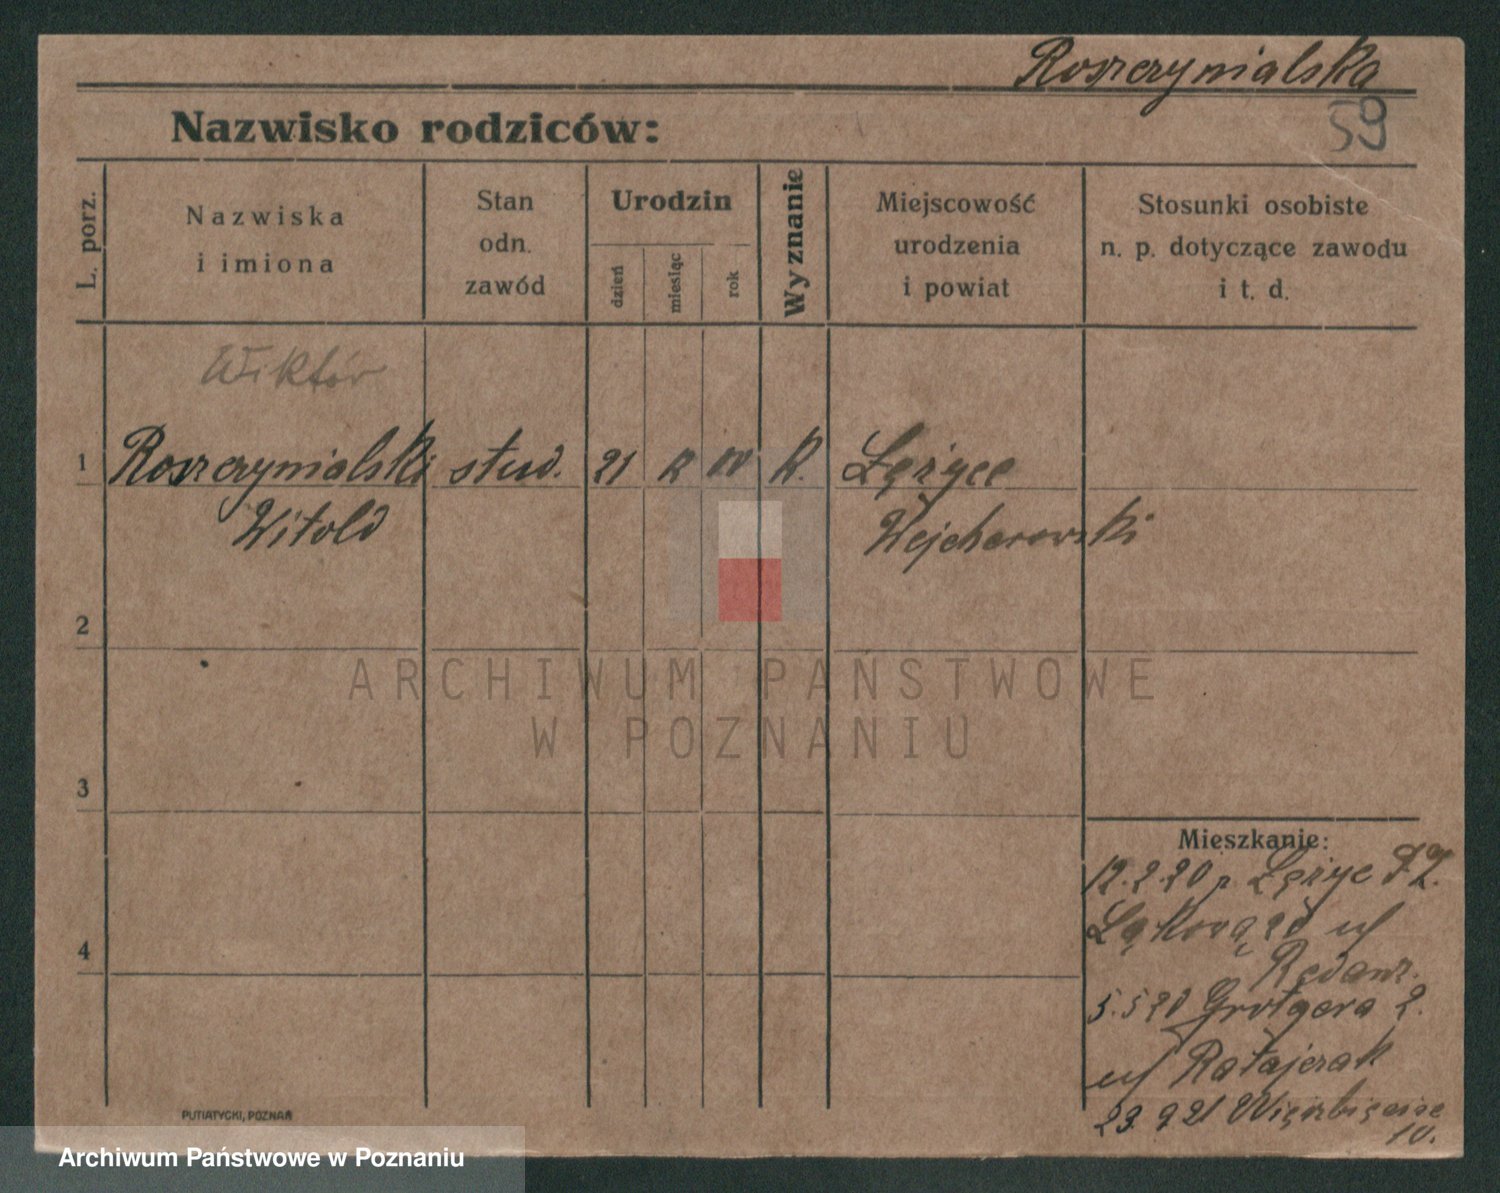 Roszczynialska
59
Nazwisko rodziców:
L. porz.
Nazwiska
i imiona
Stan
odn.
zawód
Urodzin
dzień
miesiąc
rok
Wyznanie
Miejscowość
urodzenia
i powiat
Stosunki osobiste
n. p. dotyczące zawodu
i t. d.
Wiktór
1 Roszczynialski stud. 21 K. Łężyce
Witold Wejherowski
2
ARCHIWUM PAŃSTWOWE
W POZNANIU
3
Mieszkanie:
12.2.20 Łężyce
4
5.5 20 Grotgera 2.
Ratajczak
23. 9 21 Wierzbięcice
10.
PUTIATYCKI, POZNAŃ
Archiwum Państwowe w Poznaniu